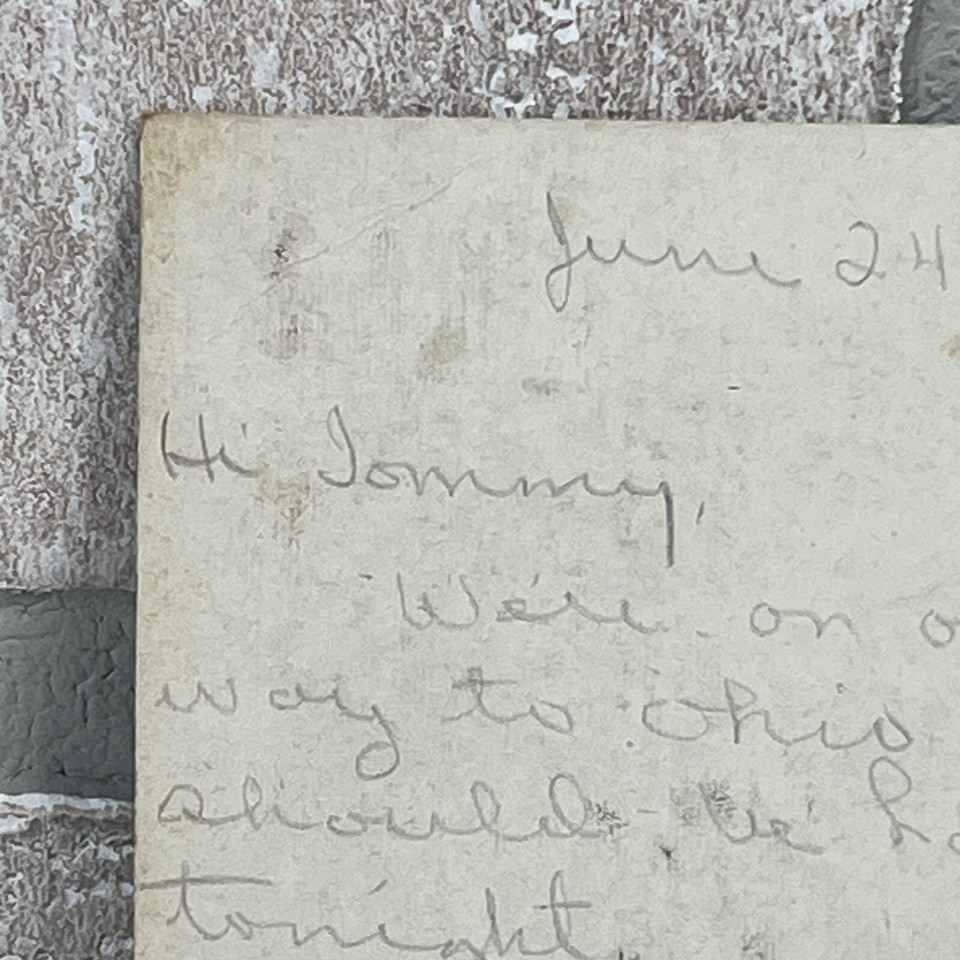 June 24
Hi Tommy,
We're on
way to Ohio
should be
tonight.